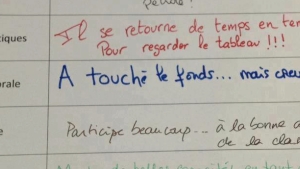 tiques
Il se retourne de temps en tem
Pour regarder le tableau !!!
orale
A touché le fonds... mais creu
e
Participe beaucoup... à la bonne a
de la clas